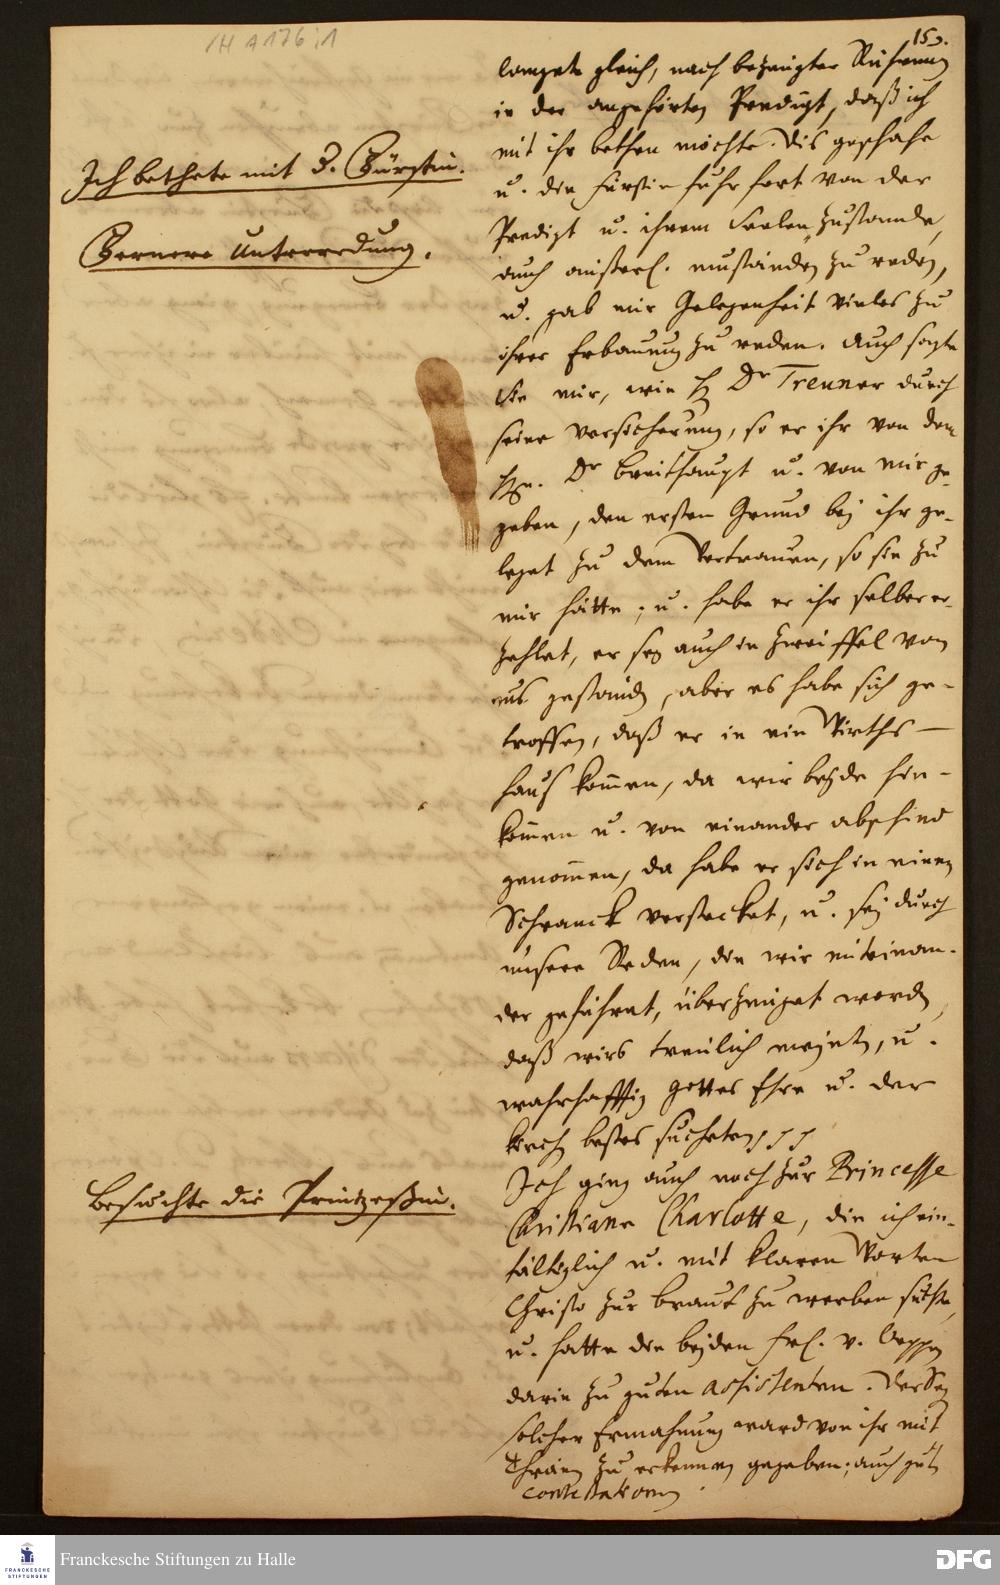 /H A 176 : 1
15).
langete gleich, nach bezeugter Rührung
in der angehörten Predigt, daß ich
mit ihr bethen möchte. Dis geschahe
Ich bethete mit d. Fürstin.
u. die Fürstin fuhr fort von der
Predigt u. ihrem Seelen-Zustande,
Fernere Unterredung.
auch äußerl. umständen zu reden,
u. gab mir Gelegenheit vieles zu
ihrer Erbauung zu reden. Auch sagte
Sie mir, wie H. Dr Treuner durch
seine versicherung, so er ihr von dem
Hn. Dr Breithaupt u. von mir ge-
geben, den ersten Grund bey ihr ge-
leget zu dem Vertrauen, so sie zu
mir hätte; u. habe er ihr selber er-
zehlet, er sey auch in Zweiffel von
uns gestanden, aber es habe sich ge-
troffen, daß er in ein Wirths-
hauß kommen, da wir beyde hin-
kommen u. von einander abschied
genommen, da habe er sich in einen
Schranck verstecket, u. sey durch
unsere Reden, die wir miteinan-
der geführet, überzeuget worden,
daß wirs treulich meynten, u.
wahrhafftig Gottes Ehre u. der
Kirchen bestes sucheten,,,
Ich ging auch noch zur Princesse
Besuchte die Printzeßin.
Christiane Charlotte, die ich ein-
fältiglich u. mit klaren Worten
Christo zur braut zu werben suchte,
u. hatte die beyden Frl. v. Oeppen
darin zu guten assistenten. Der Segen
solcher Ermahnung ward von ihr mit
Thränen zu erkennen gegeben; auch gute
contestationen.
FRANCKESCHE
STIFTUNGEN
Franckesche Stiftungen zu Halle
DFG